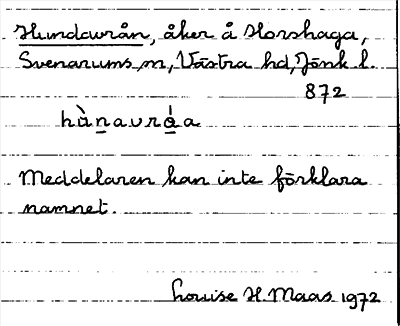 Hundawrån, åker å Horshaga,
Svenarums sn, Västra hd, Jönk l.
872
hùnavrǻa
Meddelaren kan inte förklara
namnet.
Louise H. Maas 1972